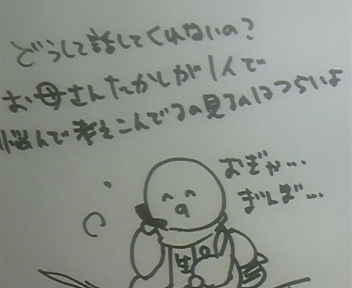 どうして話してくれないの?
お母さんたかしが1人で
悩んで考えこんでるの見るのはつらいよ
おぎゃ…
まんま…